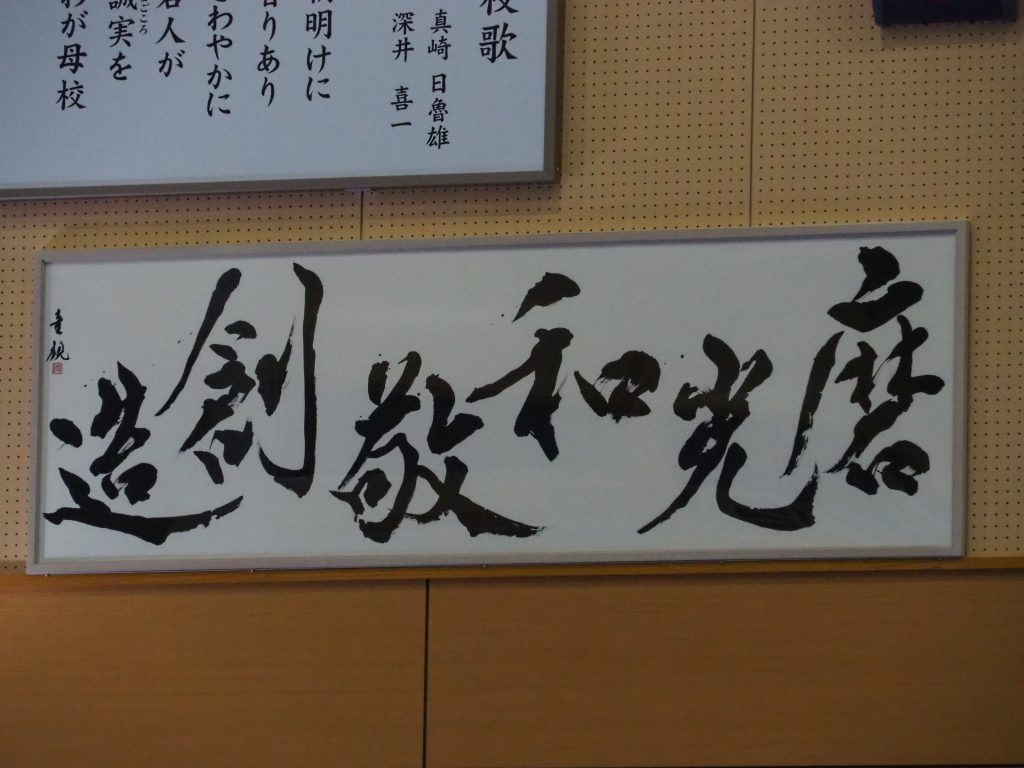 校歌
真崎 日魯雄
深井 喜一
明けに
りあり
わやかに
人が
誠実を
ごころ
が母校
磨光和敬創造